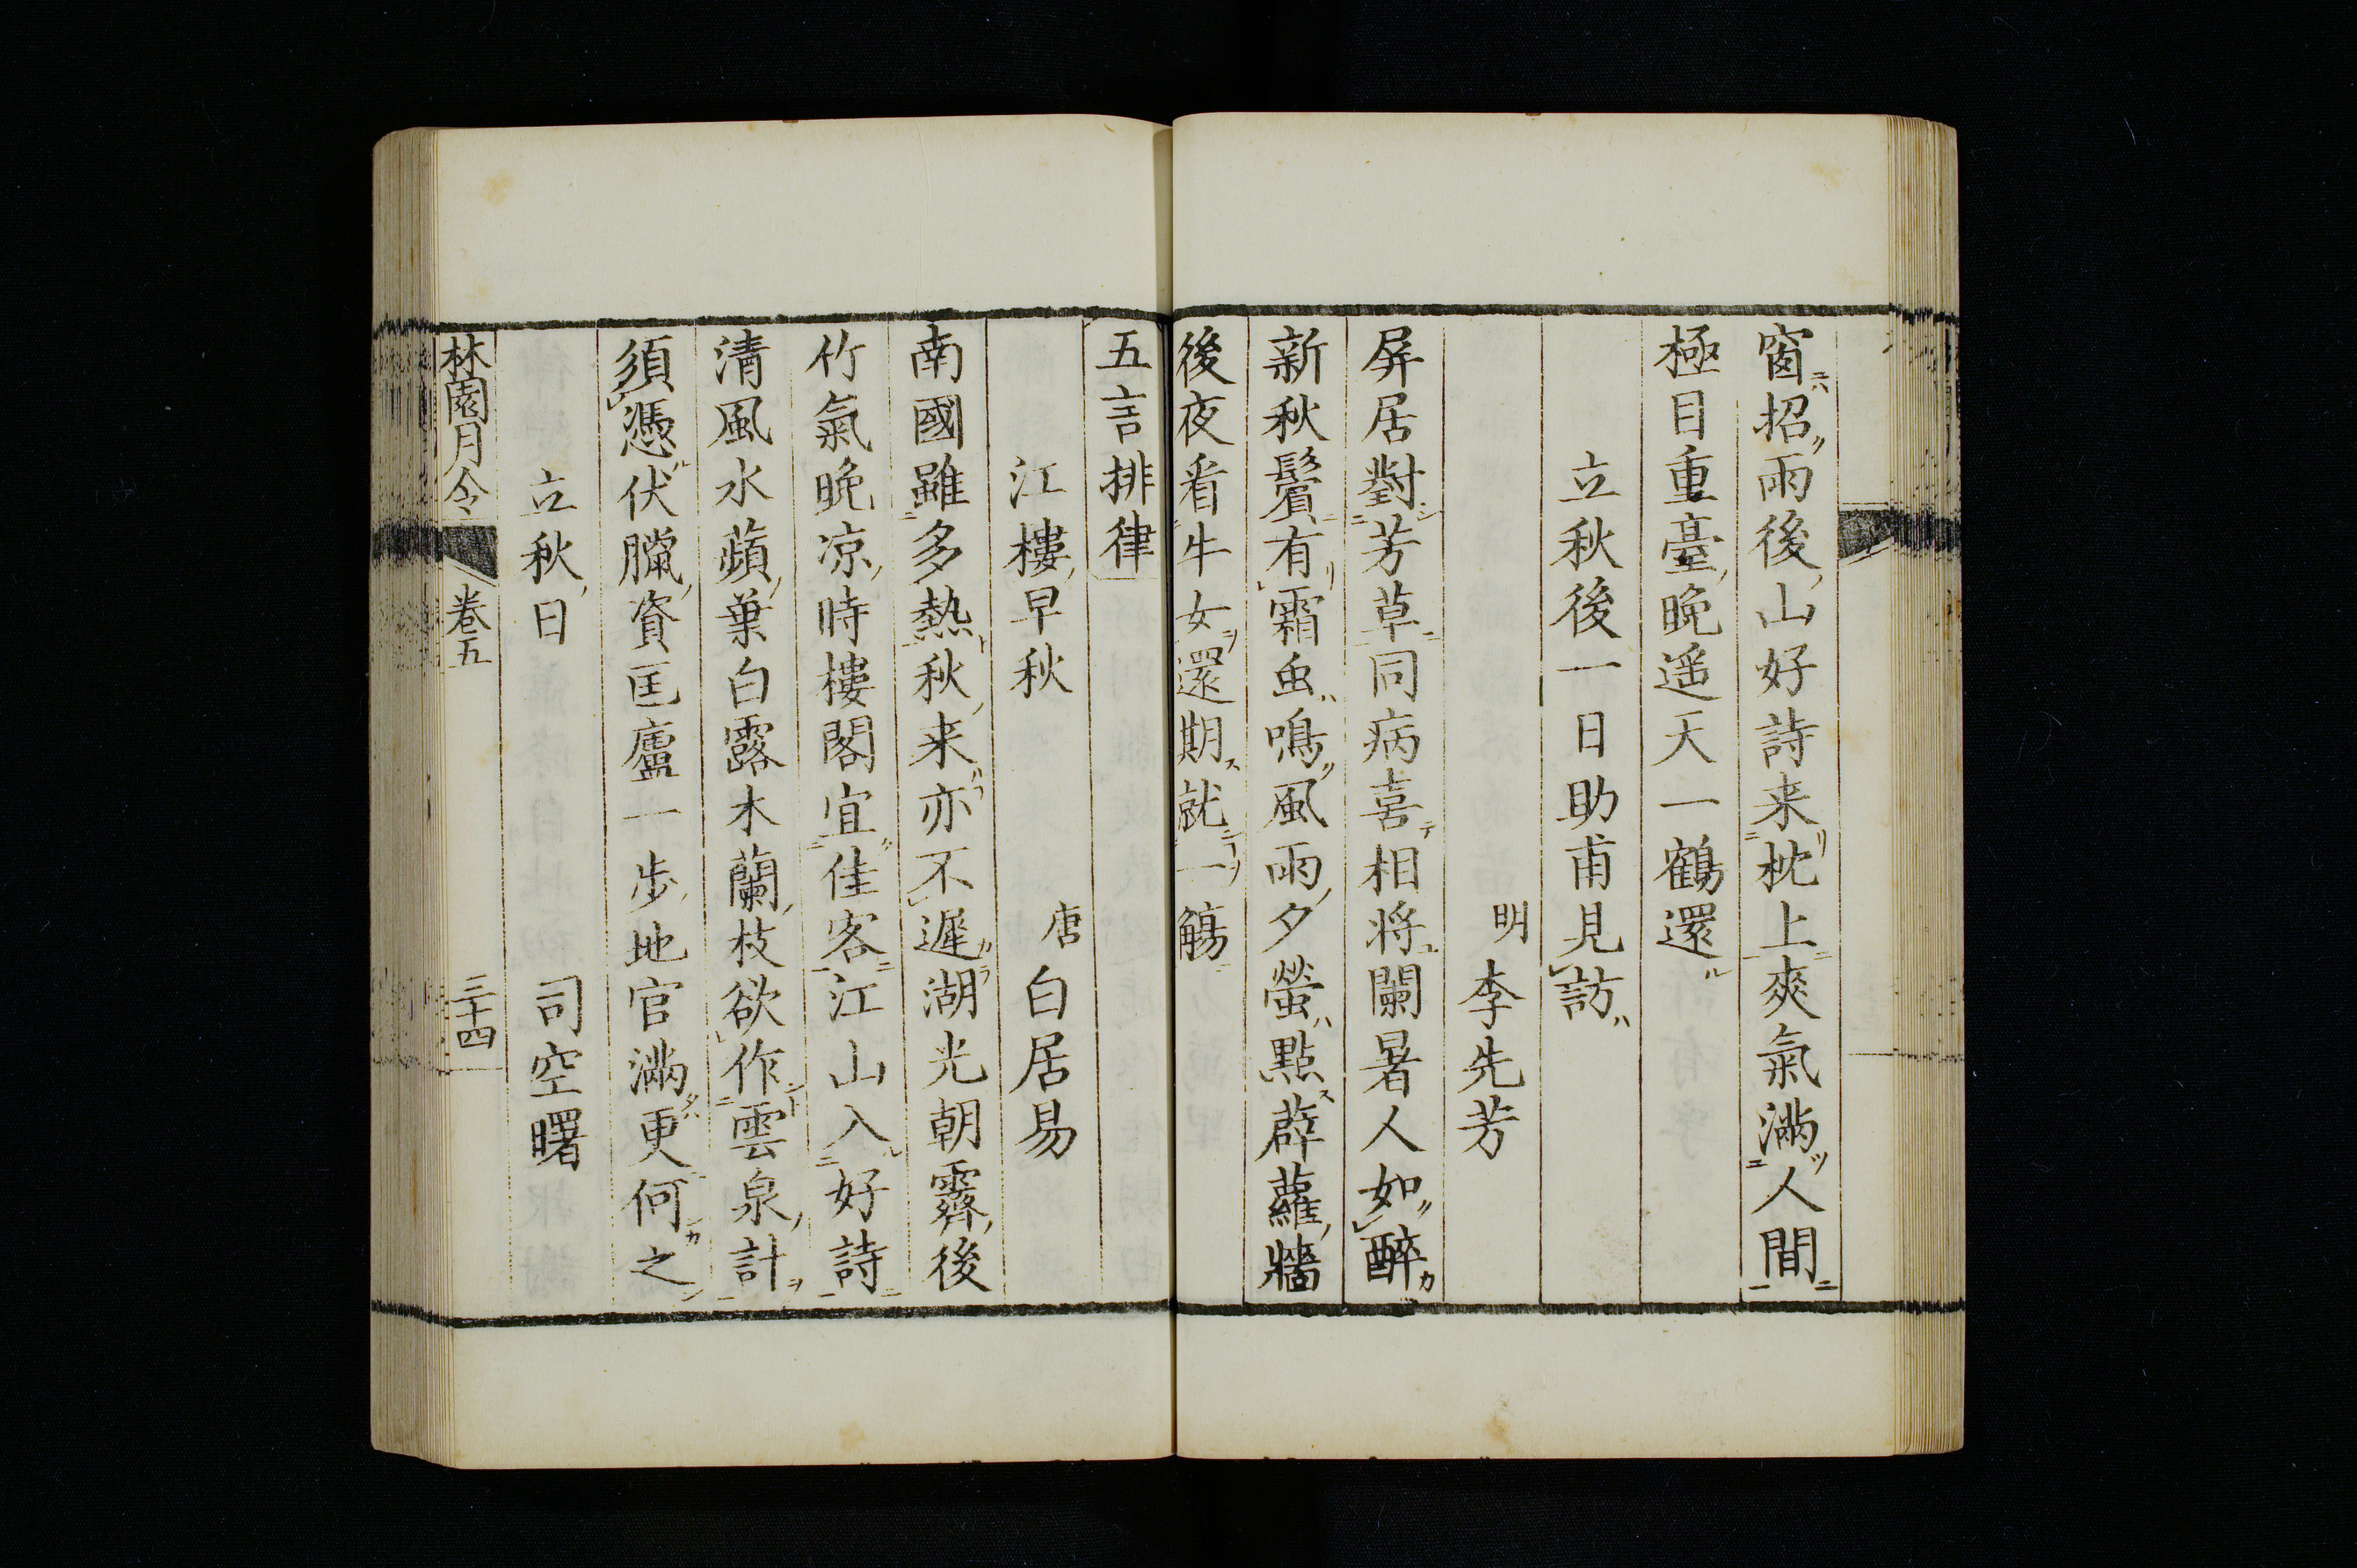 窗招雨後山好詩来枕上爽氣滿人間
極目重臺晩遥天一鶴還
立秋後一日助甫見訪
明李先芳
屏居對芳草同病喜相将闌暑人如醉
新秋鬢有霜虫鳴風雨夕螢點薜蘿牆
後夜看牛女還期就一觴
五言排律
江樓早秋
唐白居易
南國雖多熱秋来亦不遲湖光朝霽後
竹氣晩凉時樓閣宜佳客江山入好詩
清風水蘋葉白露木蘭枝欲作雲泉計
須憑伏臘資匡廬一歩地官滿更何之
立秋日
司空曙
林園月令
卷五
三十四